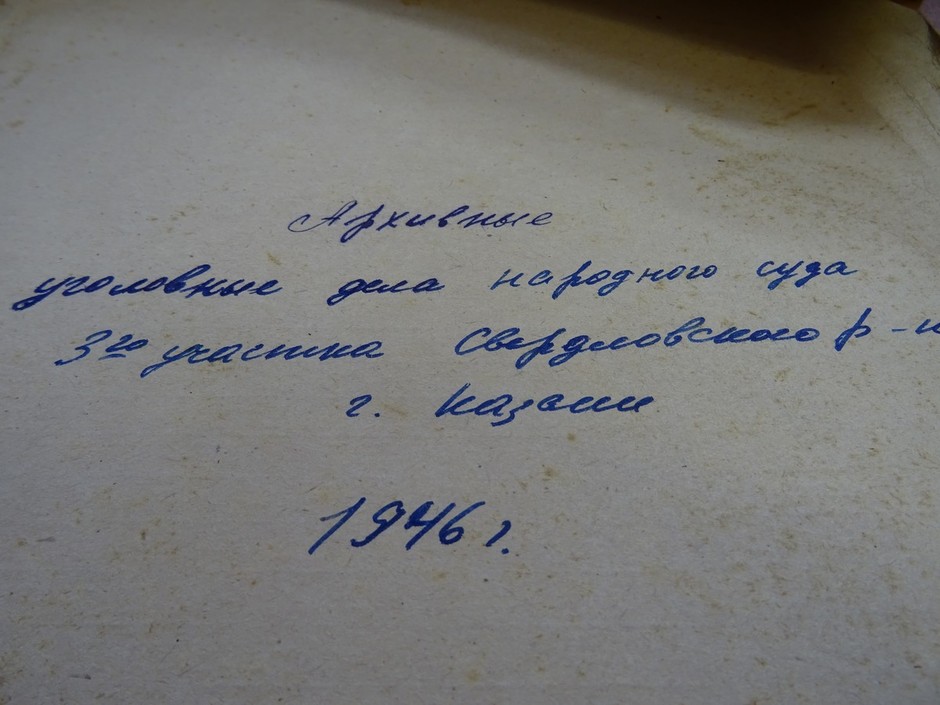 Архивные
уголовные дела народного суда
3го участка Свердловского р-н
г. Казани
1946 г.